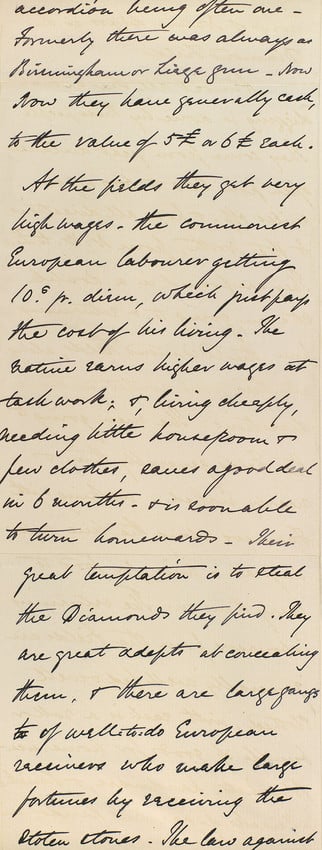 accordion being often one –
Formerly there was always a
Birmingham or Liege gun – Now
Now they have generally cash,
to the value of 5£ or 6£ each.
At the fields they get very
high wages – the commonest
European labourer getting
10.s pr. diem, which just pays
the cost of his living – The
native earns higher wages at
task work; &, living cheaply,
needing little houseroom &
few clothes, saves a good deal
in 6 months – & is soon able
to turn homewards – Their
great temptation is to steal
the Diamonds they find. They
are great adepts at concealing
them, & there are large gangs
to of well-to-do European
receivers who make large
fortunes by receiving the
stolen stones. The law against